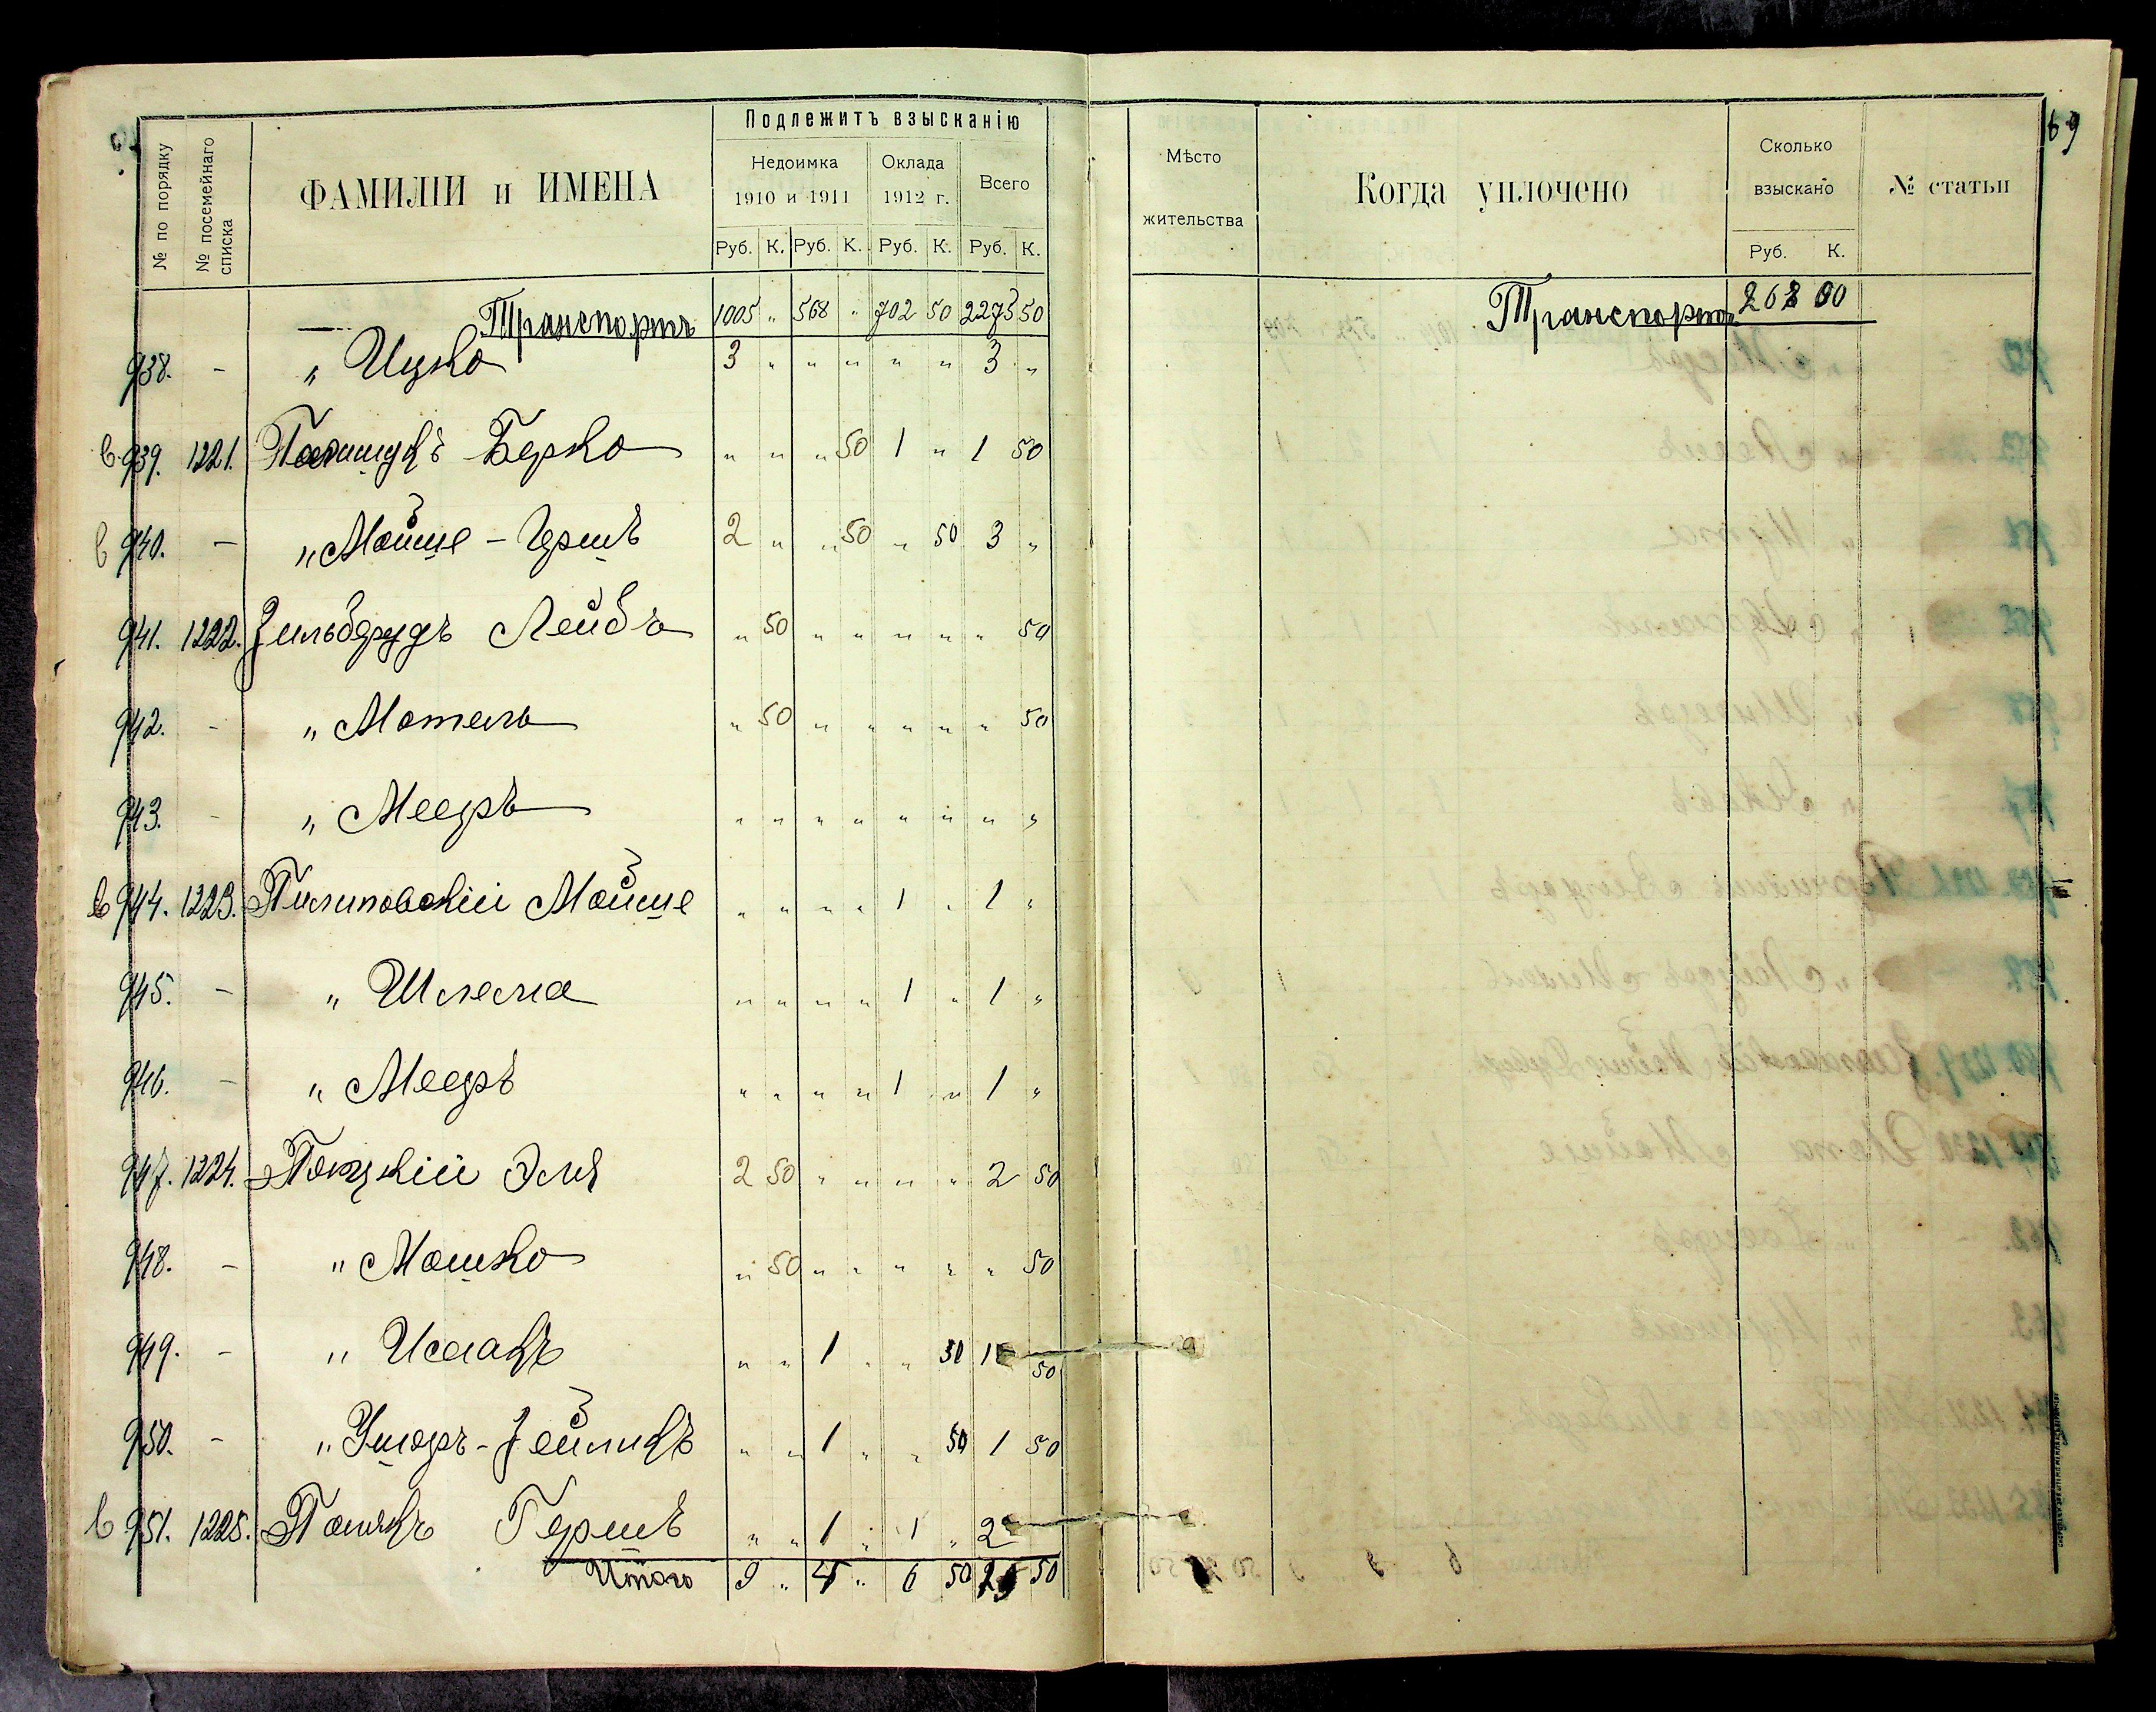 69
Подлежитъ взысканію
№ по порядку
№ посемейнаго списка
ФАМИЛІИ и ИМЕНА
Недоимка 1910 и 1911
Оклада 1912 г.
Всего
Руб. К. Руб. К. Руб. К. Руб. К.
Мѣсто жительства
Когда уплочено
Сколько взыскано
Руб. К.
№ статьи
Транспортъ 1005 „ 568 „ 702 50 2275 50
Транспортъ
938. - „ Ицко 3 „ „ „ „ „ 3 „
в 939. 1221. Берко „ „ „ 50 1 „ 1 50
в 940. - „ Мойше - Гершъ 2 „ „ 50 „ 50 3 „
941. 1222. Зильберудъ Лейбъ „ 50 „ „ „ „ „ 50
942. - „ Мотель „ 50 „ „ „ „ „ 50
943. - „ Мееръ „ „ „ „ „ „ „ „
в 944. 1223. Пилиповскій Мойше „ „ „ „ 1 „ 1 „
945. - „ Шлема „ „ „ „ 1 „ 1 „
946. - „ Мееръ „ „ „ „ 1 „ 1 „
947. 1224. Эля 2 50 „ „ „ „ 2 50
948. - „ Мошко „ 50 „ „ „ „ „ 50
949. - „ Исаакъ „ „ 1 „ „ 50 1 50
950. - „ Ушеръ-Зейликъ „ „ 1 „ „ 50 1 50
в 951. 1225. Полякъ Гершъ „ „ 1 „ 1 „ 2
Итого 9 „ 4 „ 6 50 50